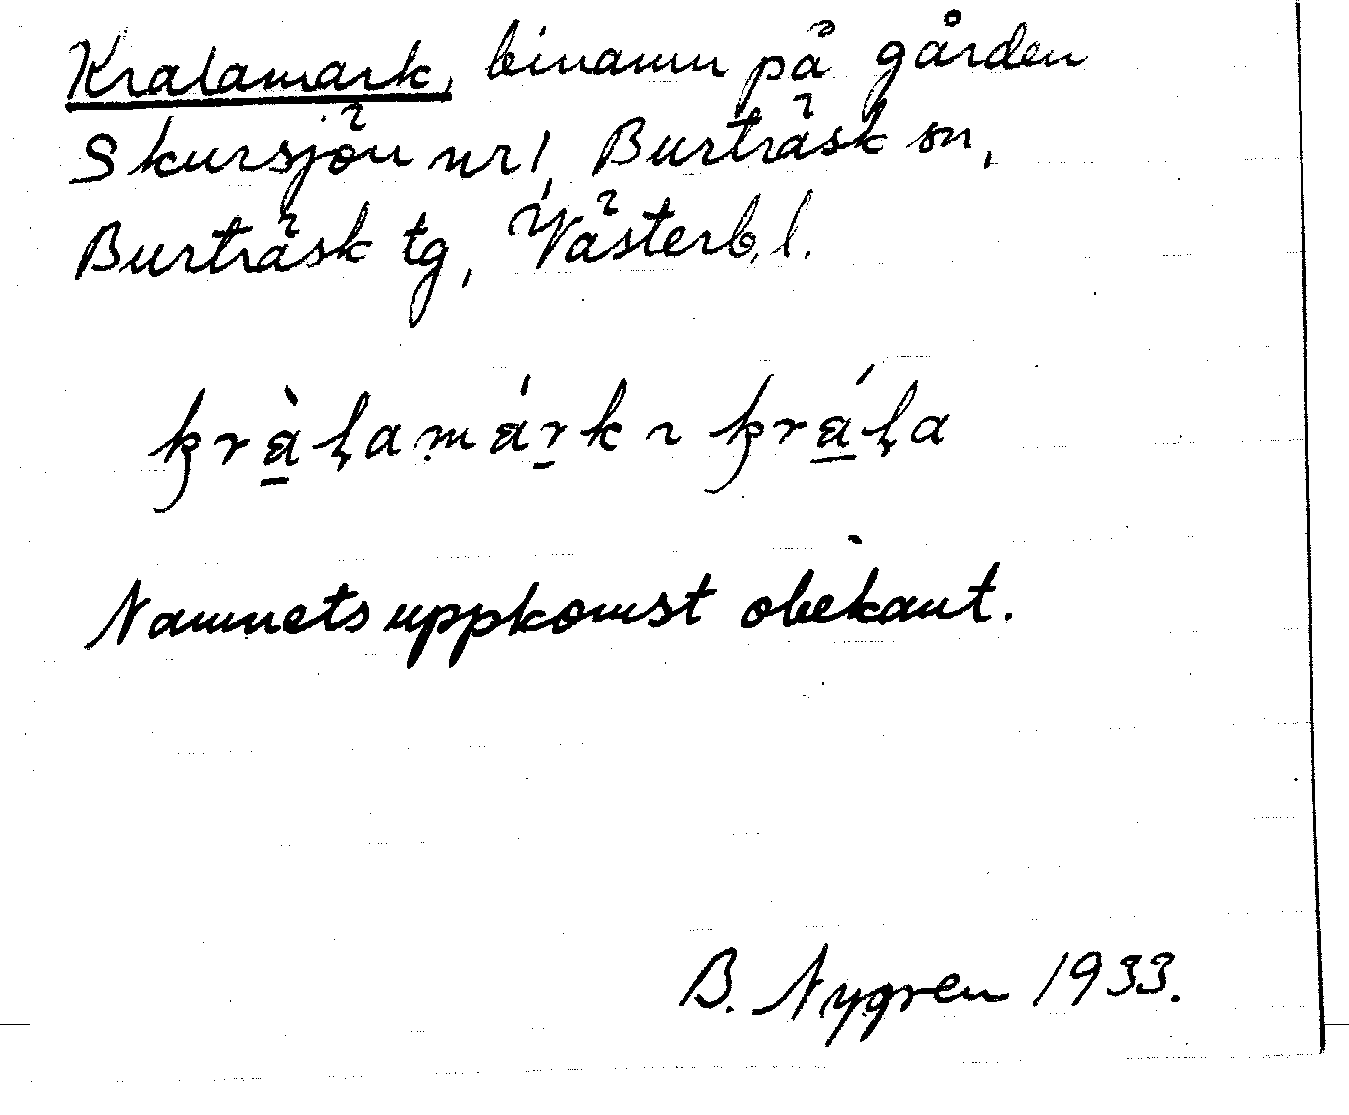 Kralamark, binamn på gården
Skursjön nr 1, Burträsk sn,
Burträsk tg, Västerb. l.
kràḷamárk ~ kráḷa
Namnets uppkomst obekant.
B. Nygren 1933.